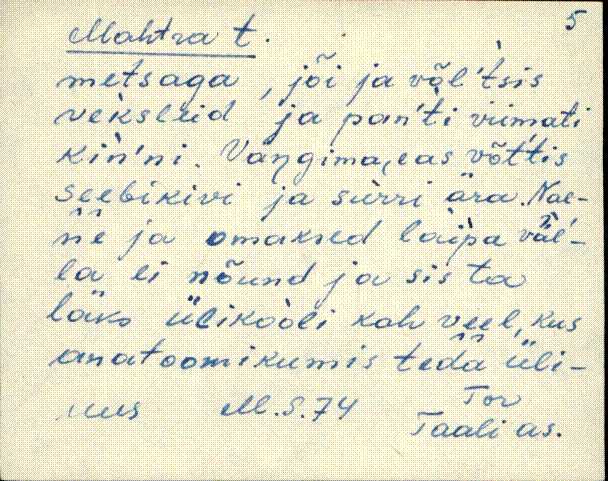 5
Mahtra t.
metsaga, jõi ja võl'tsis
vèksleid ja pan'ti viimati
kìn'ni. Vaŋgima,eas võttis
seebikivi ja sùrri ära. Nae-
nê ja omaksed làipa väl'-
la ei nõund ja sis ta
läks ülikòòli kah veel, kus
anatoomikumis tedä üli-
mus M.S.74 Tor
Taali as.